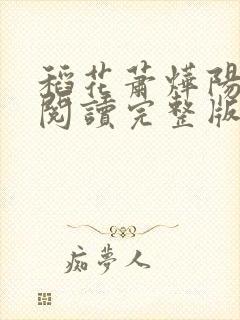 稻花蕭燁陽
閱讀完整版
痴夢人